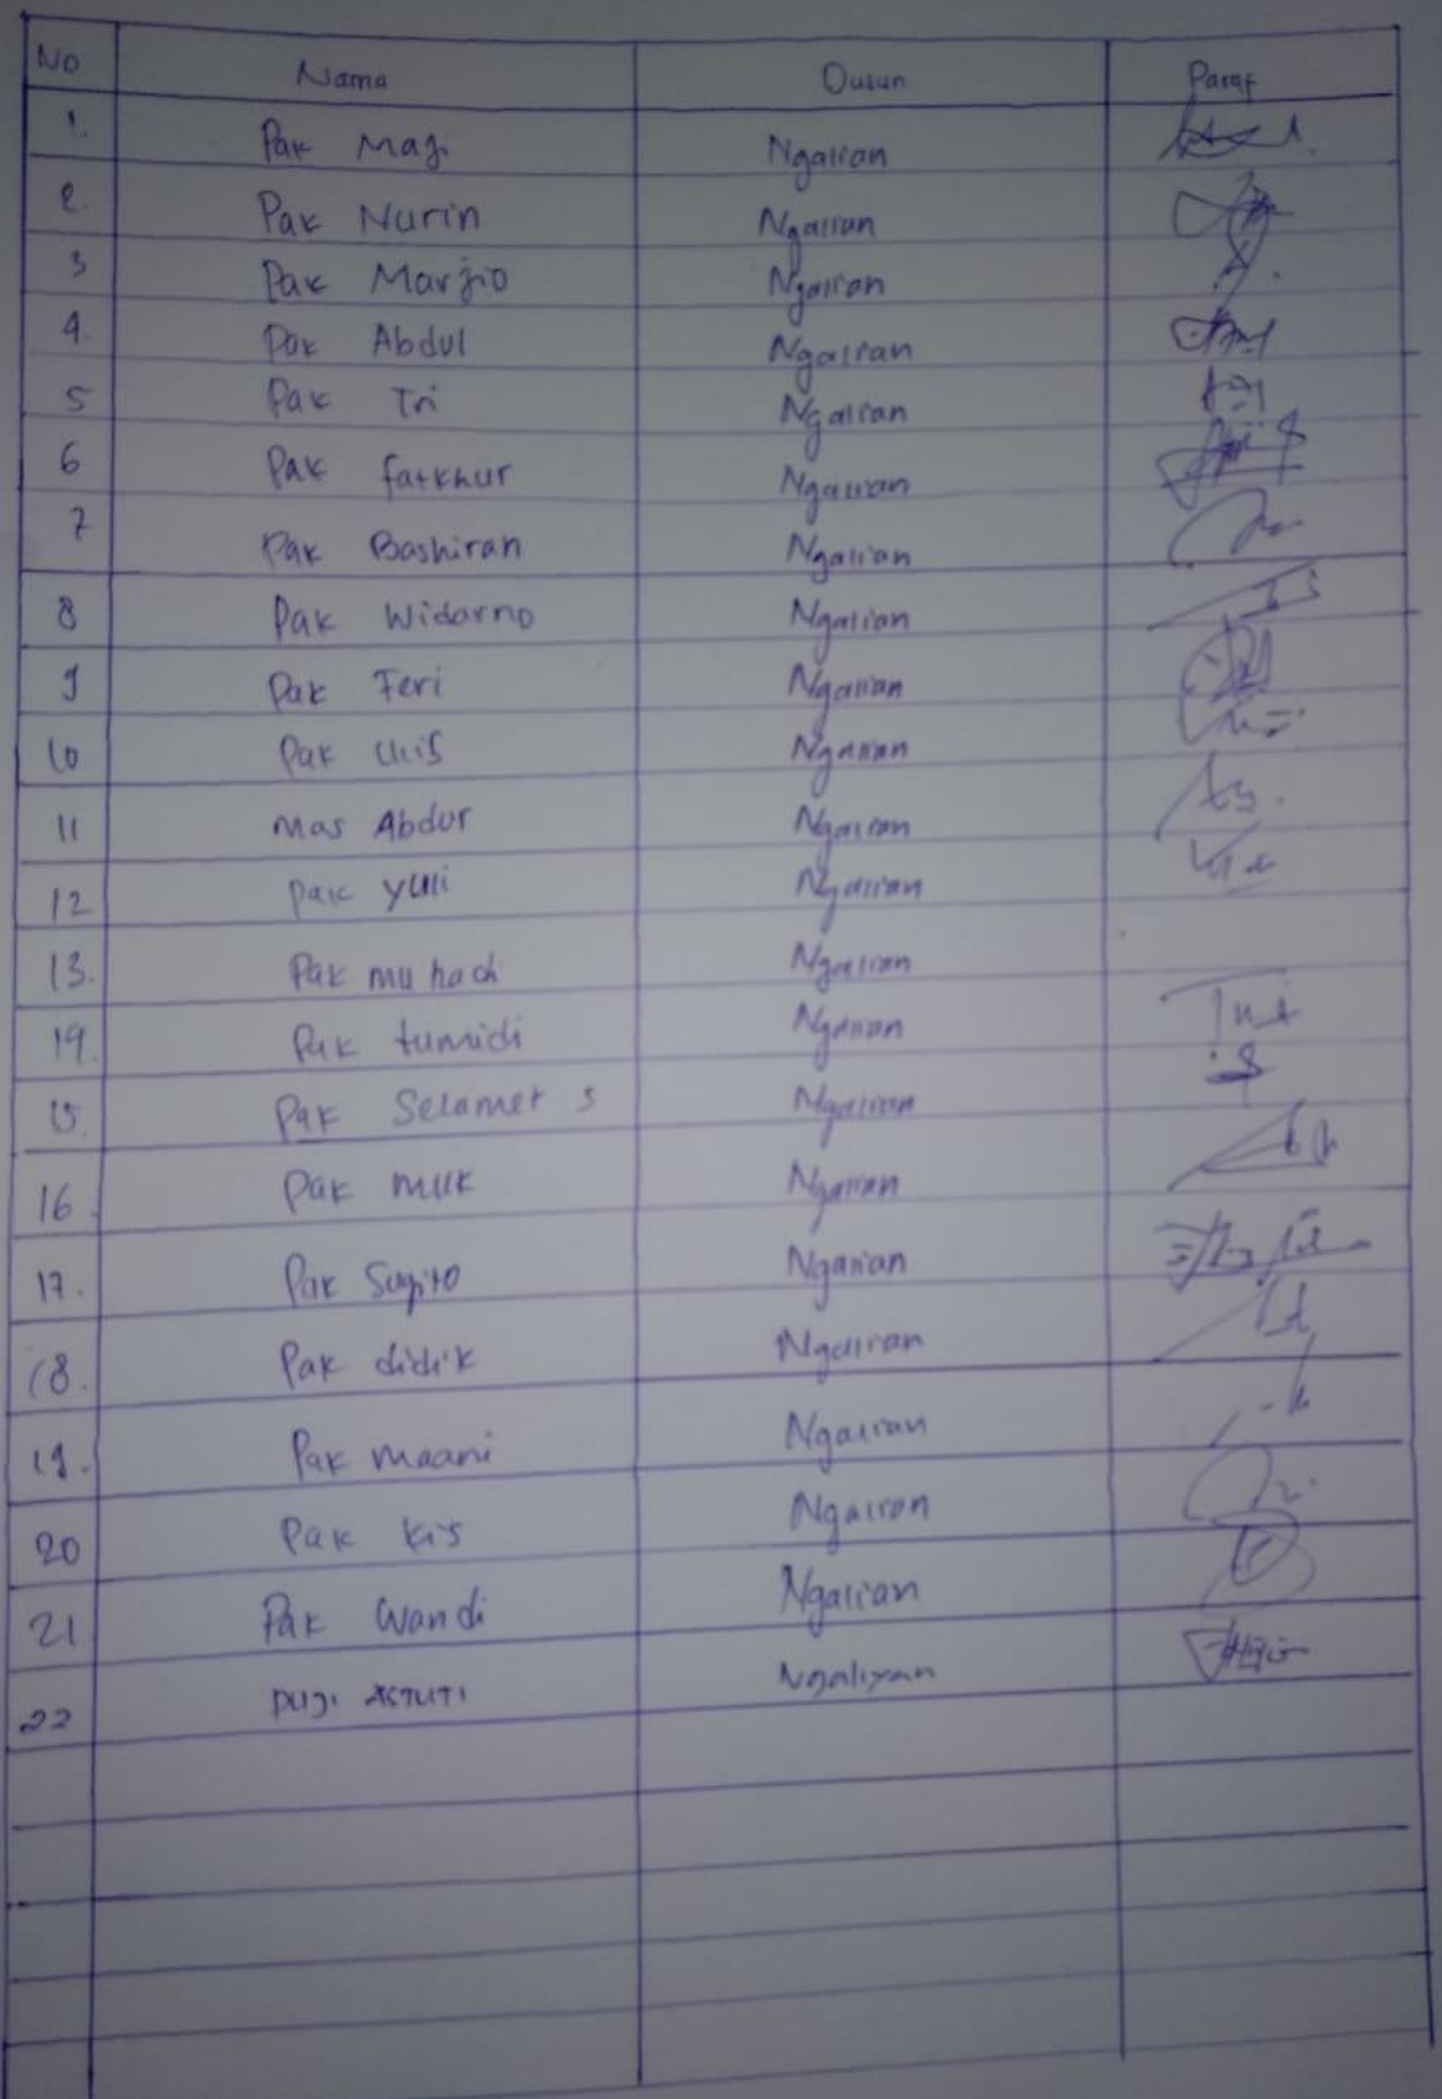 No Nama Dusun Paraf
1. Pak Maji Ngalian
2. Pak Nurin Ngalian
3 Pak Marjio Ngalian
4. Pak Abdul Ngalian
5 Pak Tri Ngalian
6 Pak fatkhur Ngalian
7 Pak Bashiran Ngalian
8 Pak Widarno Ngalian
9 Pak Feri Ngalian
10 Pak Ngalian
11 Mas Abdur Ngalian
12 Pak Yuli Ngalian
13. Pak Ngalian
14. Pak tumidi Ngalian
15. Pak Selamet S Ngalian
16. Pak muk Ngalian
17. Pak Sugito Ngalian
18. Pak didik Ngalian
19. Pak maani Ngalian
20 Pak kis Ngalian
21 Pak Wandi Ngalian
22 PUJI ASTUTI Ngaliyan